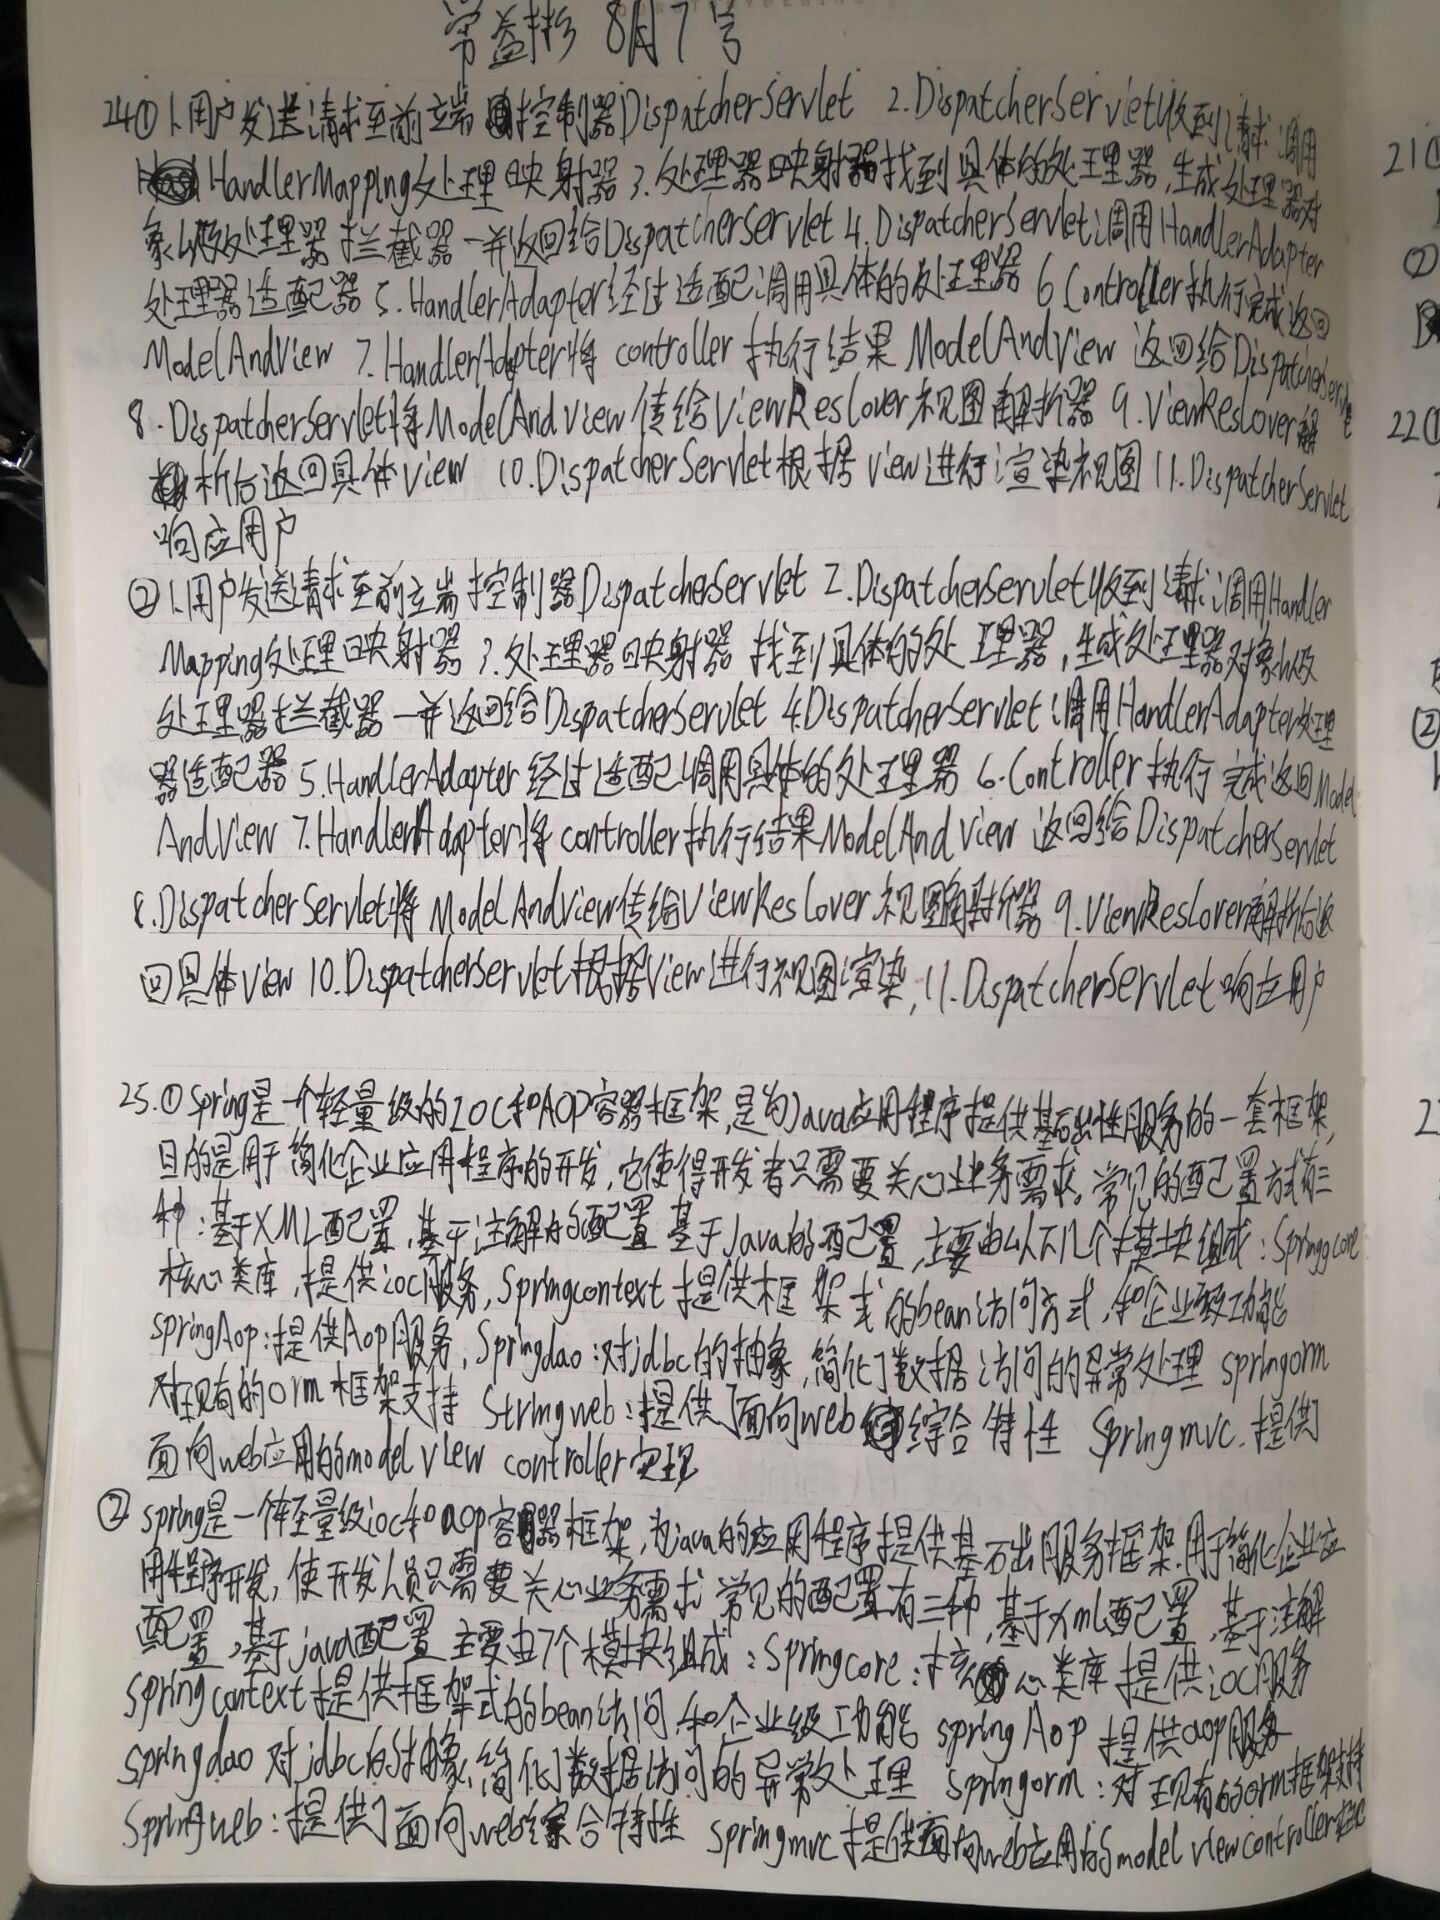 8月7号
24① 1.用户发送请求至前端控制器DispatcherServlet 2.DispatcherServlet收到请求调用
HandlerMapping处理器映射器 3.处理器映射器找到具体的处理器,生成处理器对
象以及处理器拦截器一并返回给DispatcherServlet 4.DispatcherServlet调用HandlerAdapter
处理器适配器 5.HandlerAdapter经过适配调用具体的处理器 6 Controller执行完成返回
ModelAndView 7.HandlerAdapter将controller执行结果ModelAndView 返回给DispatcherServlet
8.DispatcherServlet将ModelAndView传给ViewResLover视图解析器 9.ViewResLover解
析后返回具体View 10.DispatcherServlet根据view进行渲染视图 11.DispatcherServlet
响应用户
② 1.用户发送请求至前端控制器DispatcherServlet 2.DispatcherServlet收到请求调用Handler
Mapping处理器映射器 3.处理器映射器找到具体的处理器,生成处理器对象以及
处理器拦截器一并返回给DispatcherServlet 4.DispatcherServlet调用HandlerAdapter处理
器适配器 5.HandlerAdapter经过适配调用具体的处理器 6.Controller执行完成返回Model
AndView 7.HandlerAdapter将controller执行结果ModelAndView 返回给DispatcherServlet
8.DispatcherServlet将ModelAndView传给ViewResLover视图解析器 9.ViewResLover解析后返
回具体View 10.DispatcherServlet根据View进行视图渲染, 11.DispatcherServlet响应用户
25.①Spring是一个轻量级的IOC和AOP容器框架,是为Java应用程序提供基础性服务的一套框架,
目的是用于简化企业应用程序的开发,它使得开发者只需要关心业务需求。常见的配置方式有三
种:基于XML配置,基于注解的配置 基于Java的配置,主要由以下几个模块组成:Springcore
核心类库,提供ioc服务,Springcontext提供框架式的bean访问方式,和企业级功能
springAop:提供Aop服务,Springdao:对jdbc的抽象,简化了数据访问的异常处理 springorm
对现有的orm框架支持 Stringweb:提供了面向web综合特性 Springmvc.提供了
面向web应用的model view controller实现
② spring是一个轻量级ioc和aop容器框架,为java的应用程序提供基础服务框架.用于简化企业应
用程序开发,使开发人员只需要关心业务需求 常见的配置有三种,基于xml配置,基于注解
配置,基于java配置 主要由7个模块组成:Springcore:核心类库 提供ioc服务
springcontext提供框架式的bean访问,和企业级功能 springAop 提供aop服务
springdao 对jdbc的抽象,简化了数据访问的异常处理 springorm:对现有的orm框架支持
Springweb:提供了面向web综合特性 springmvc提供面向web应用的model view controller
21①
②
22①
②